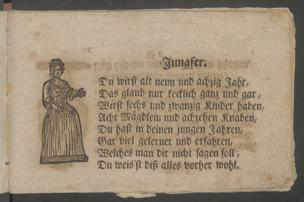 Jungfer.
Du wirst alt neun und achzig Jahr,
Das glaub nur kecklich ganz und gar,
Wirst sechs und zwanzig Kinder haben,
Acht Mägdlein und achzehen Knaben,
Du hast in deinen jungen Jahren,
Gar viel gelerner und erfahren,
Welches man dir nicht sagen soll,
Du weist diß alles vorher wohl.